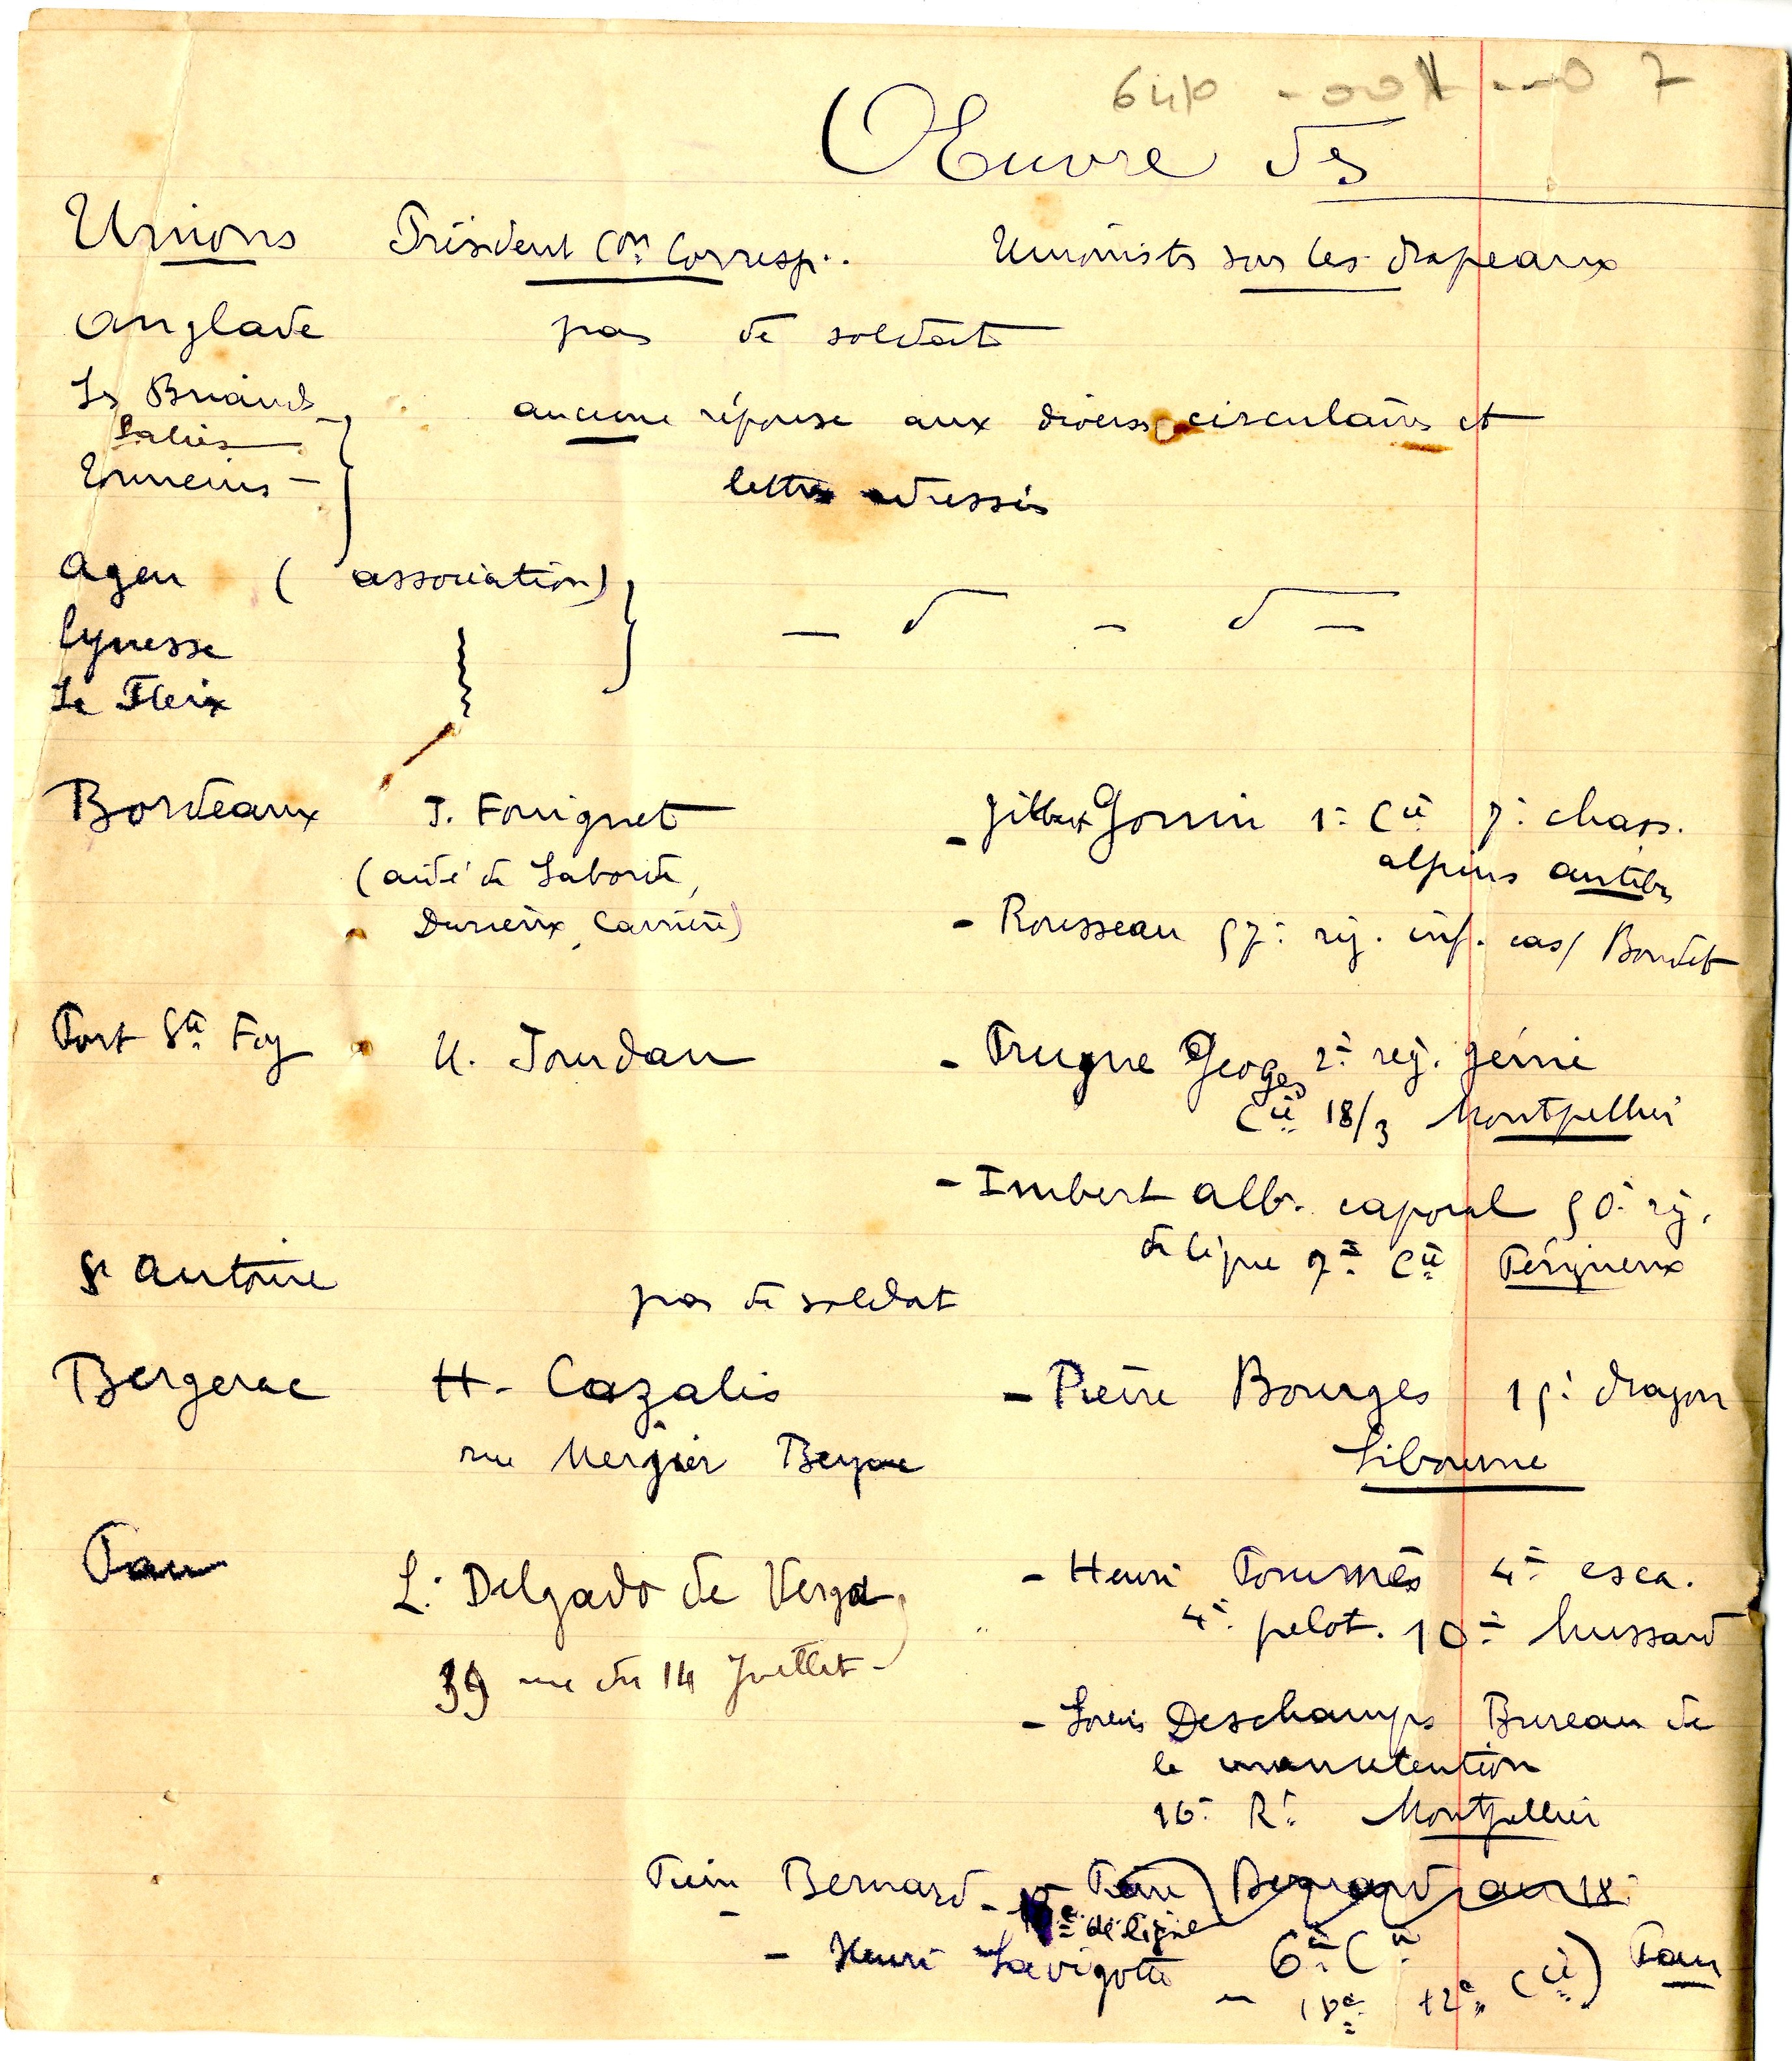 Œuvre des
Unions Président Con. Corresp. Unionists sous les drapeaux
Anglade pas de soldats
Les Briands
Salies
Tonneins
aucune réponse aux divers circulaires et
lettres adressés
Agen (association)
Eynesse — d — d —
Le Fleix
Bordeaux J. Fouignet - Gilbert Gonin 1e Cie 7e chass.
(aidé de Laborde, alpins Antibes
Durieux, Carrière) - Rousseau 57e rég. inf. cas/ Boudet
Port Ste Foy U. Jourdan - Trugne Georges 2e rég. génie
Cie 18/3 Montpellier
- Imbert Alb. caporal 50e rég.
de ligne 7e Cie Périgueux
St Antoine pas de soldat
Bergerac H. Cazalis - Pierre Bourges 15e dragon
rue Mergier Bergerac Libourne
Pau L. Delgado de Verga - Henri Pommès 4e esca.
39 rue du 14 Juillet 4e pelot. 10e hussard
- Louis Deschamps Bureau de
la manutention
16e Rt Montpellier
Bernard
de ligne
- Henri Lavigotte 6e Cie
18e 12e Cie) Pau